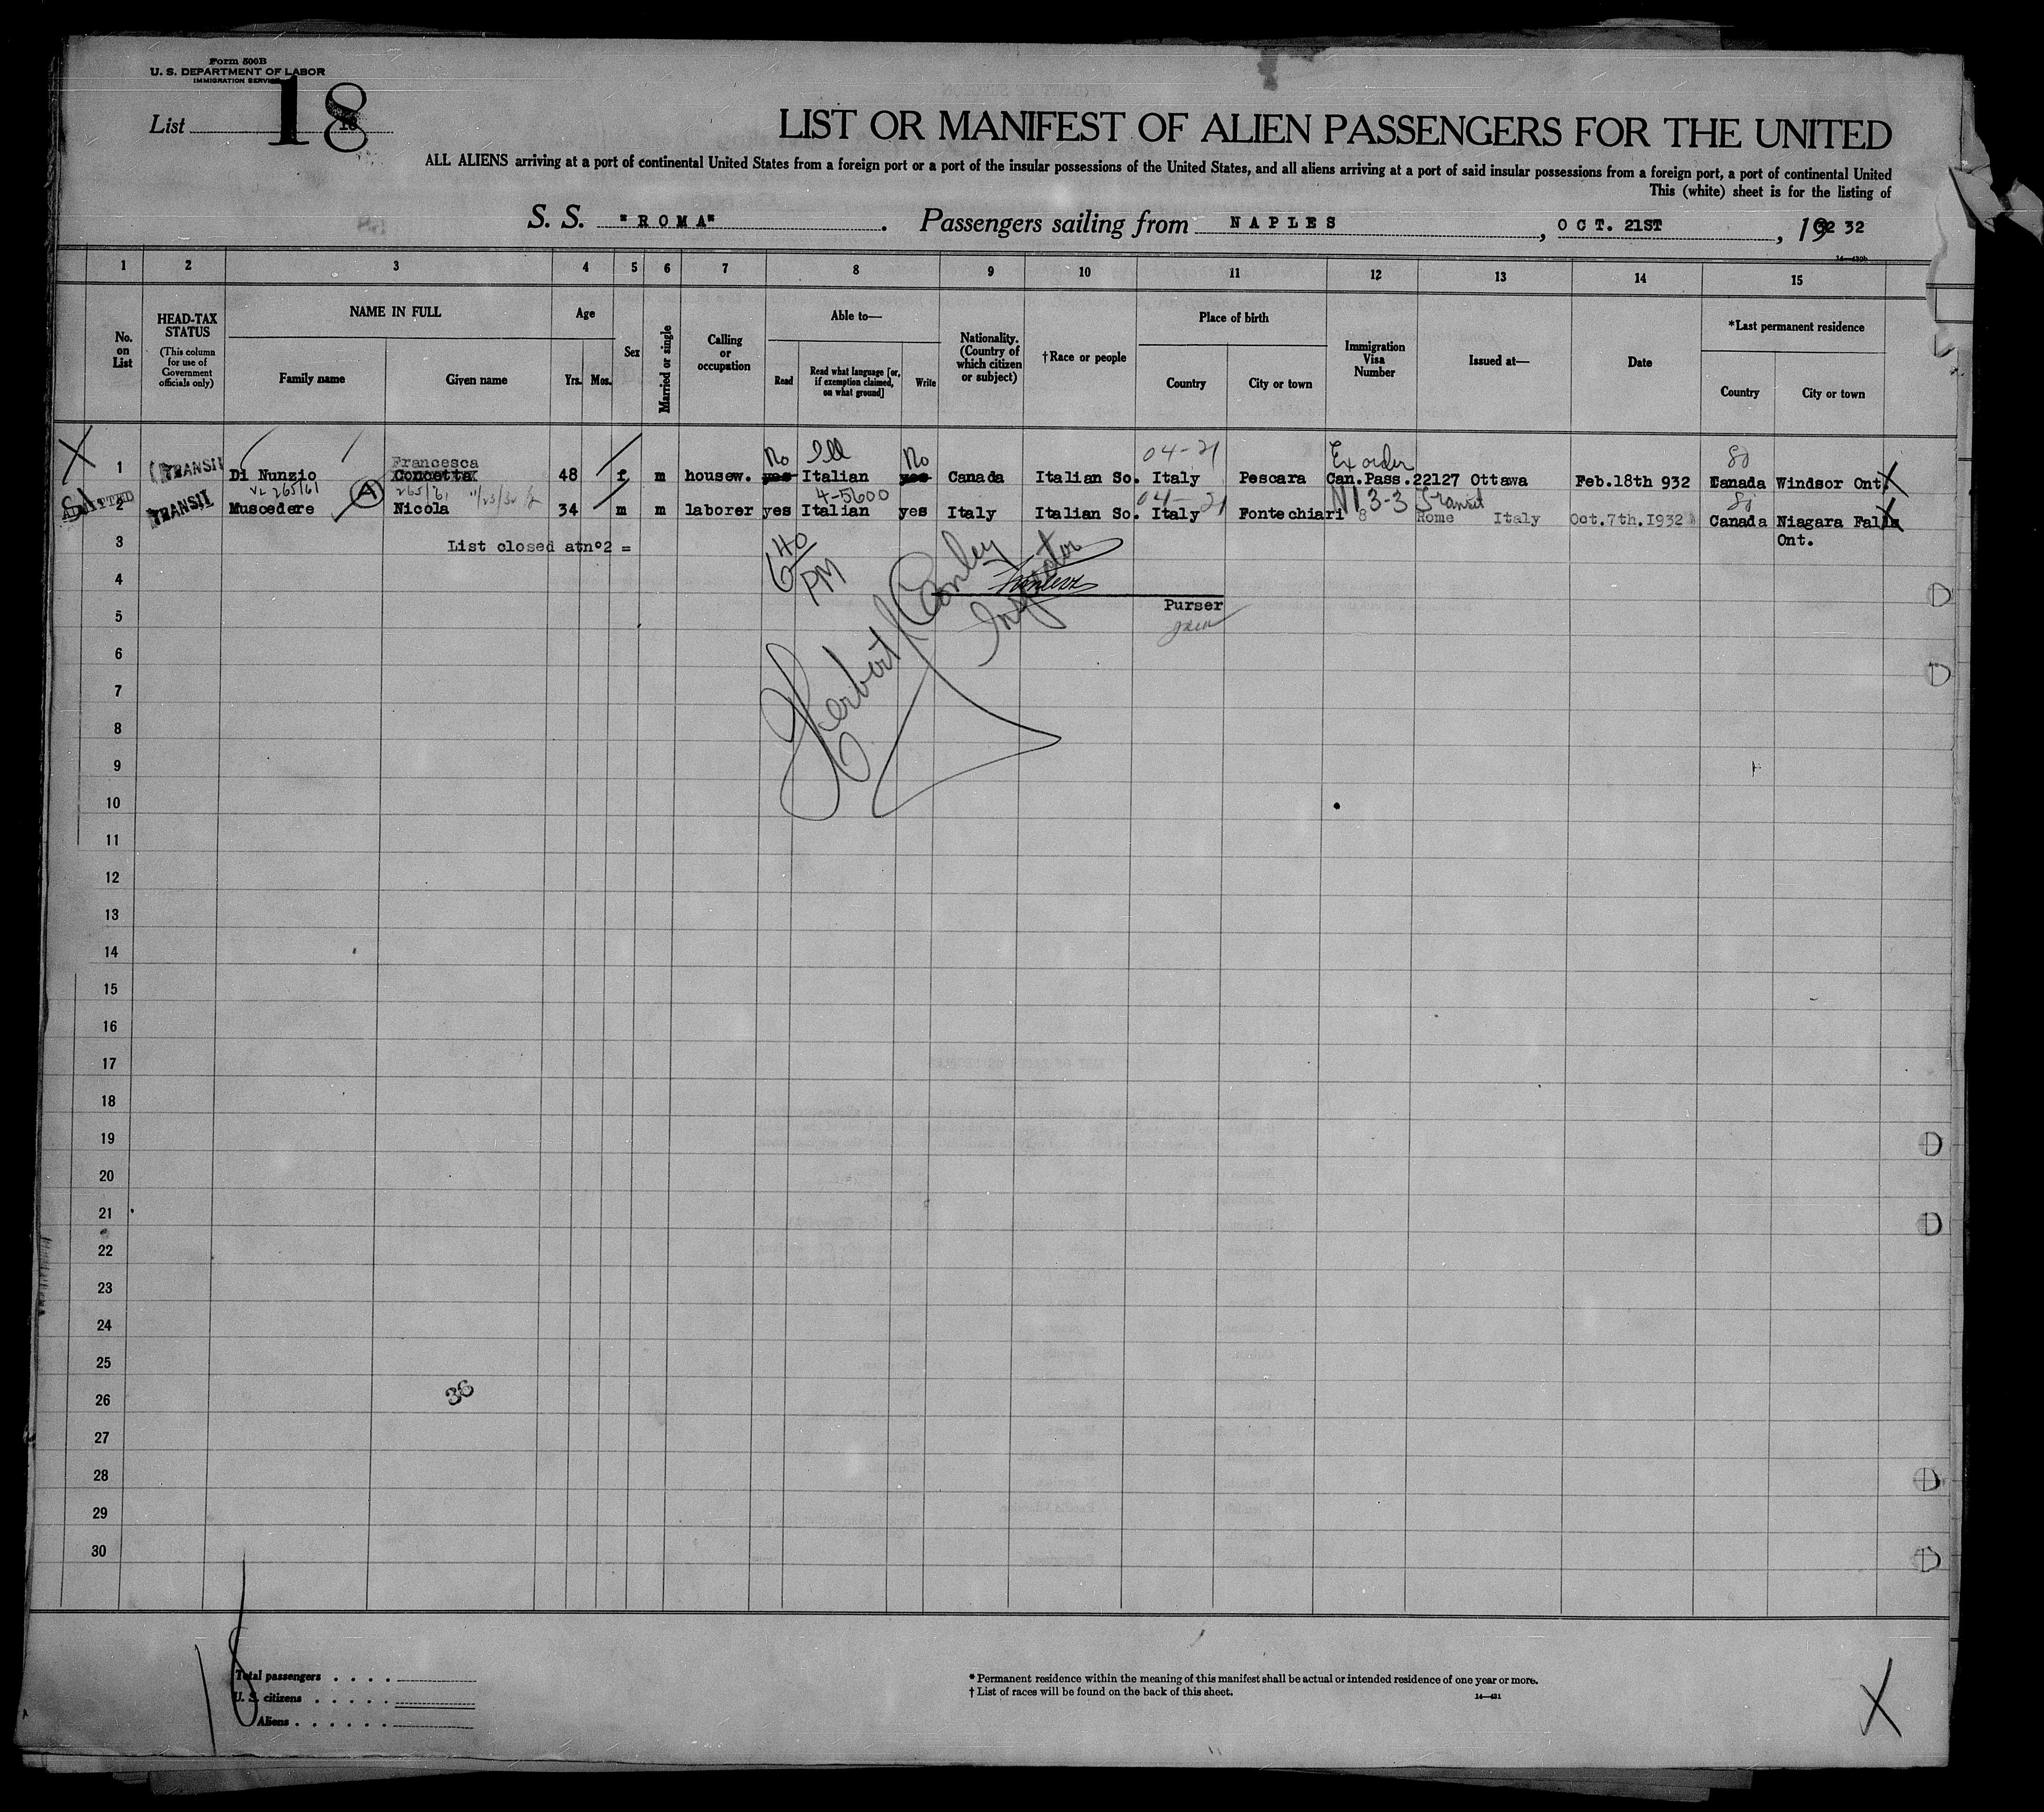 Form 500B
U. S. DEPARTMENT OF LABOR
IMMIGRATION SERVICE
List 18
LIST OR MANIFEST OF ALIEN PASSENGERS FOR THE UNITED
ALL ALIENS arriving at a port of continental United States from a foreign port or a port of the insular possessions of the United States, and all aliens arriving at a port of said insular possessions from a foreign port, a port of continental United
This (white) sheet is for the listing of
S. S. "ROMA". Passengers sailing from NAPLES, OCT. 21ST, 19 32
1 2 3 4 5 6 7 8 9 10 11 12 13 14 15
No. on List
HEAD-TAX STATUS (This column for use of Government officials only)
NAME IN FULL
Family name Given name
Age
Yrs. Mos.
Sex
Married or single
Calling or occupation
Able to—
Read
Read what language [or, if exemption claimed, on what ground]
Write
Nationality. (Country of which citizen or subject)
†Race or people
Place of birth
Country City or town
Immigration Visa Number
Issued at—
Date
*Last permanent residence
Country City or town
No No 04-21 Ex order
Francesca
1 TRANSIT Di Nunzio Concetta 48 f m housew. yes Italian yes Canada Italian So. Italy Pescara Can.Pass.22127 Ottawa Feb.18th 932 Canada Windsor Ont.
V2 265/61 A 265/61 4-5600 04-21 3-3 Transit
2 ADMITTED TRANSIT Muscedere Nicola 34 m m laborer yes Italian yes Italy Italian So. Italy Fontechiari 8 Rome Italy Oct.7th.1932 Canada Niagara Falls
Ont.
3 List closed atnº2 =
640 PM
Herbert Conley
Inspector
4
Purser
5
6
7
8
9
10
11
12
13
14
15
16
17
18
19
20
21
22
23
24
25
26
36
27
28
29
30
18
Total passengers . . . .
U. S. citizens . . . . .
Aliens . . . . . .
* Permanent residence within the meaning of this manifest shall be actual or intended residence of one year or more.
† List of races will be found on the back of this sheet.
14—431